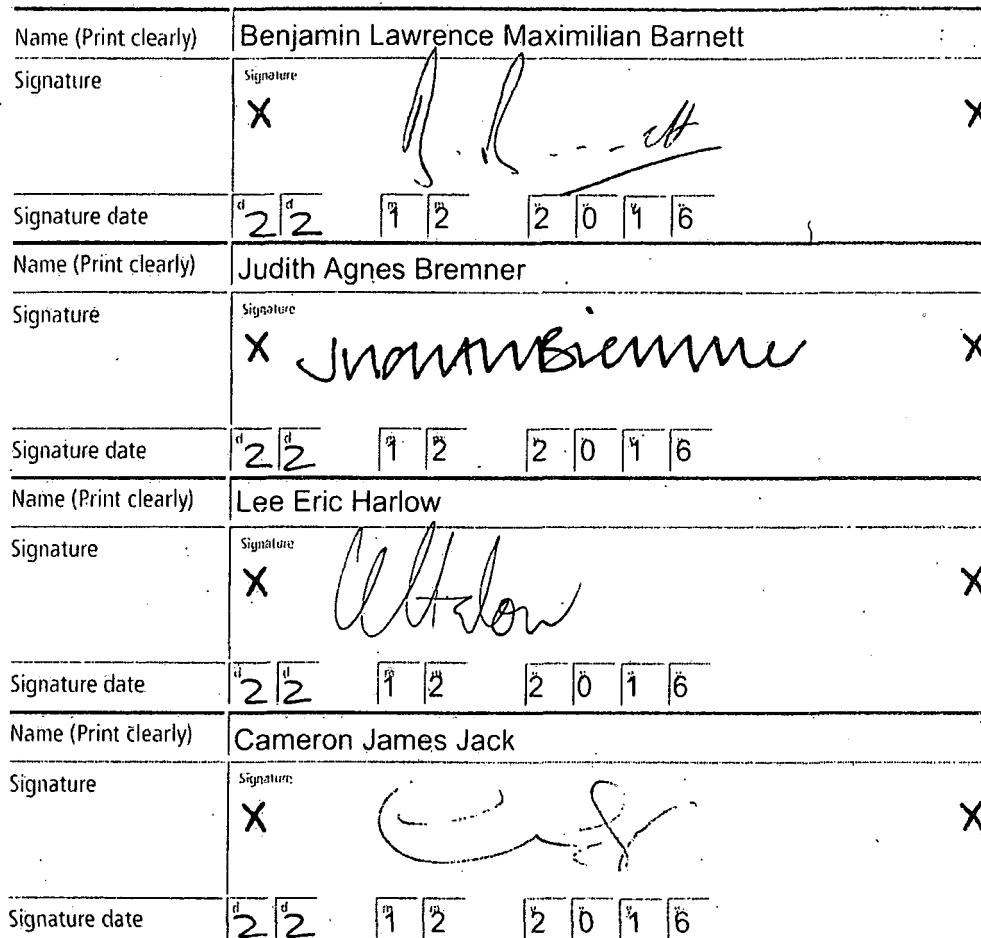 Name (Print clearly) Benjamin Lawrence Maximilian Barnett
Signature Signature
X X
Signature date d2 d2 m1 m2 y2 y0 y1 y6
Name (Print clearly) Judith Agnes Bremner
Signature Signature
X Judith Bremner X
Signature date d2 d2 m1 m2 y2 y0 y1 y6
Name (Print clearly) Lee Eric Harlow
Signature Signature
X X
Signature date d2 d2 m1 m2 y2 y0 y1 y6
Name (Print clearly) Cameron James Jack
Signature Signature
X X
Signature date d2 d2 m1 m2 y2 y0 y1 y6